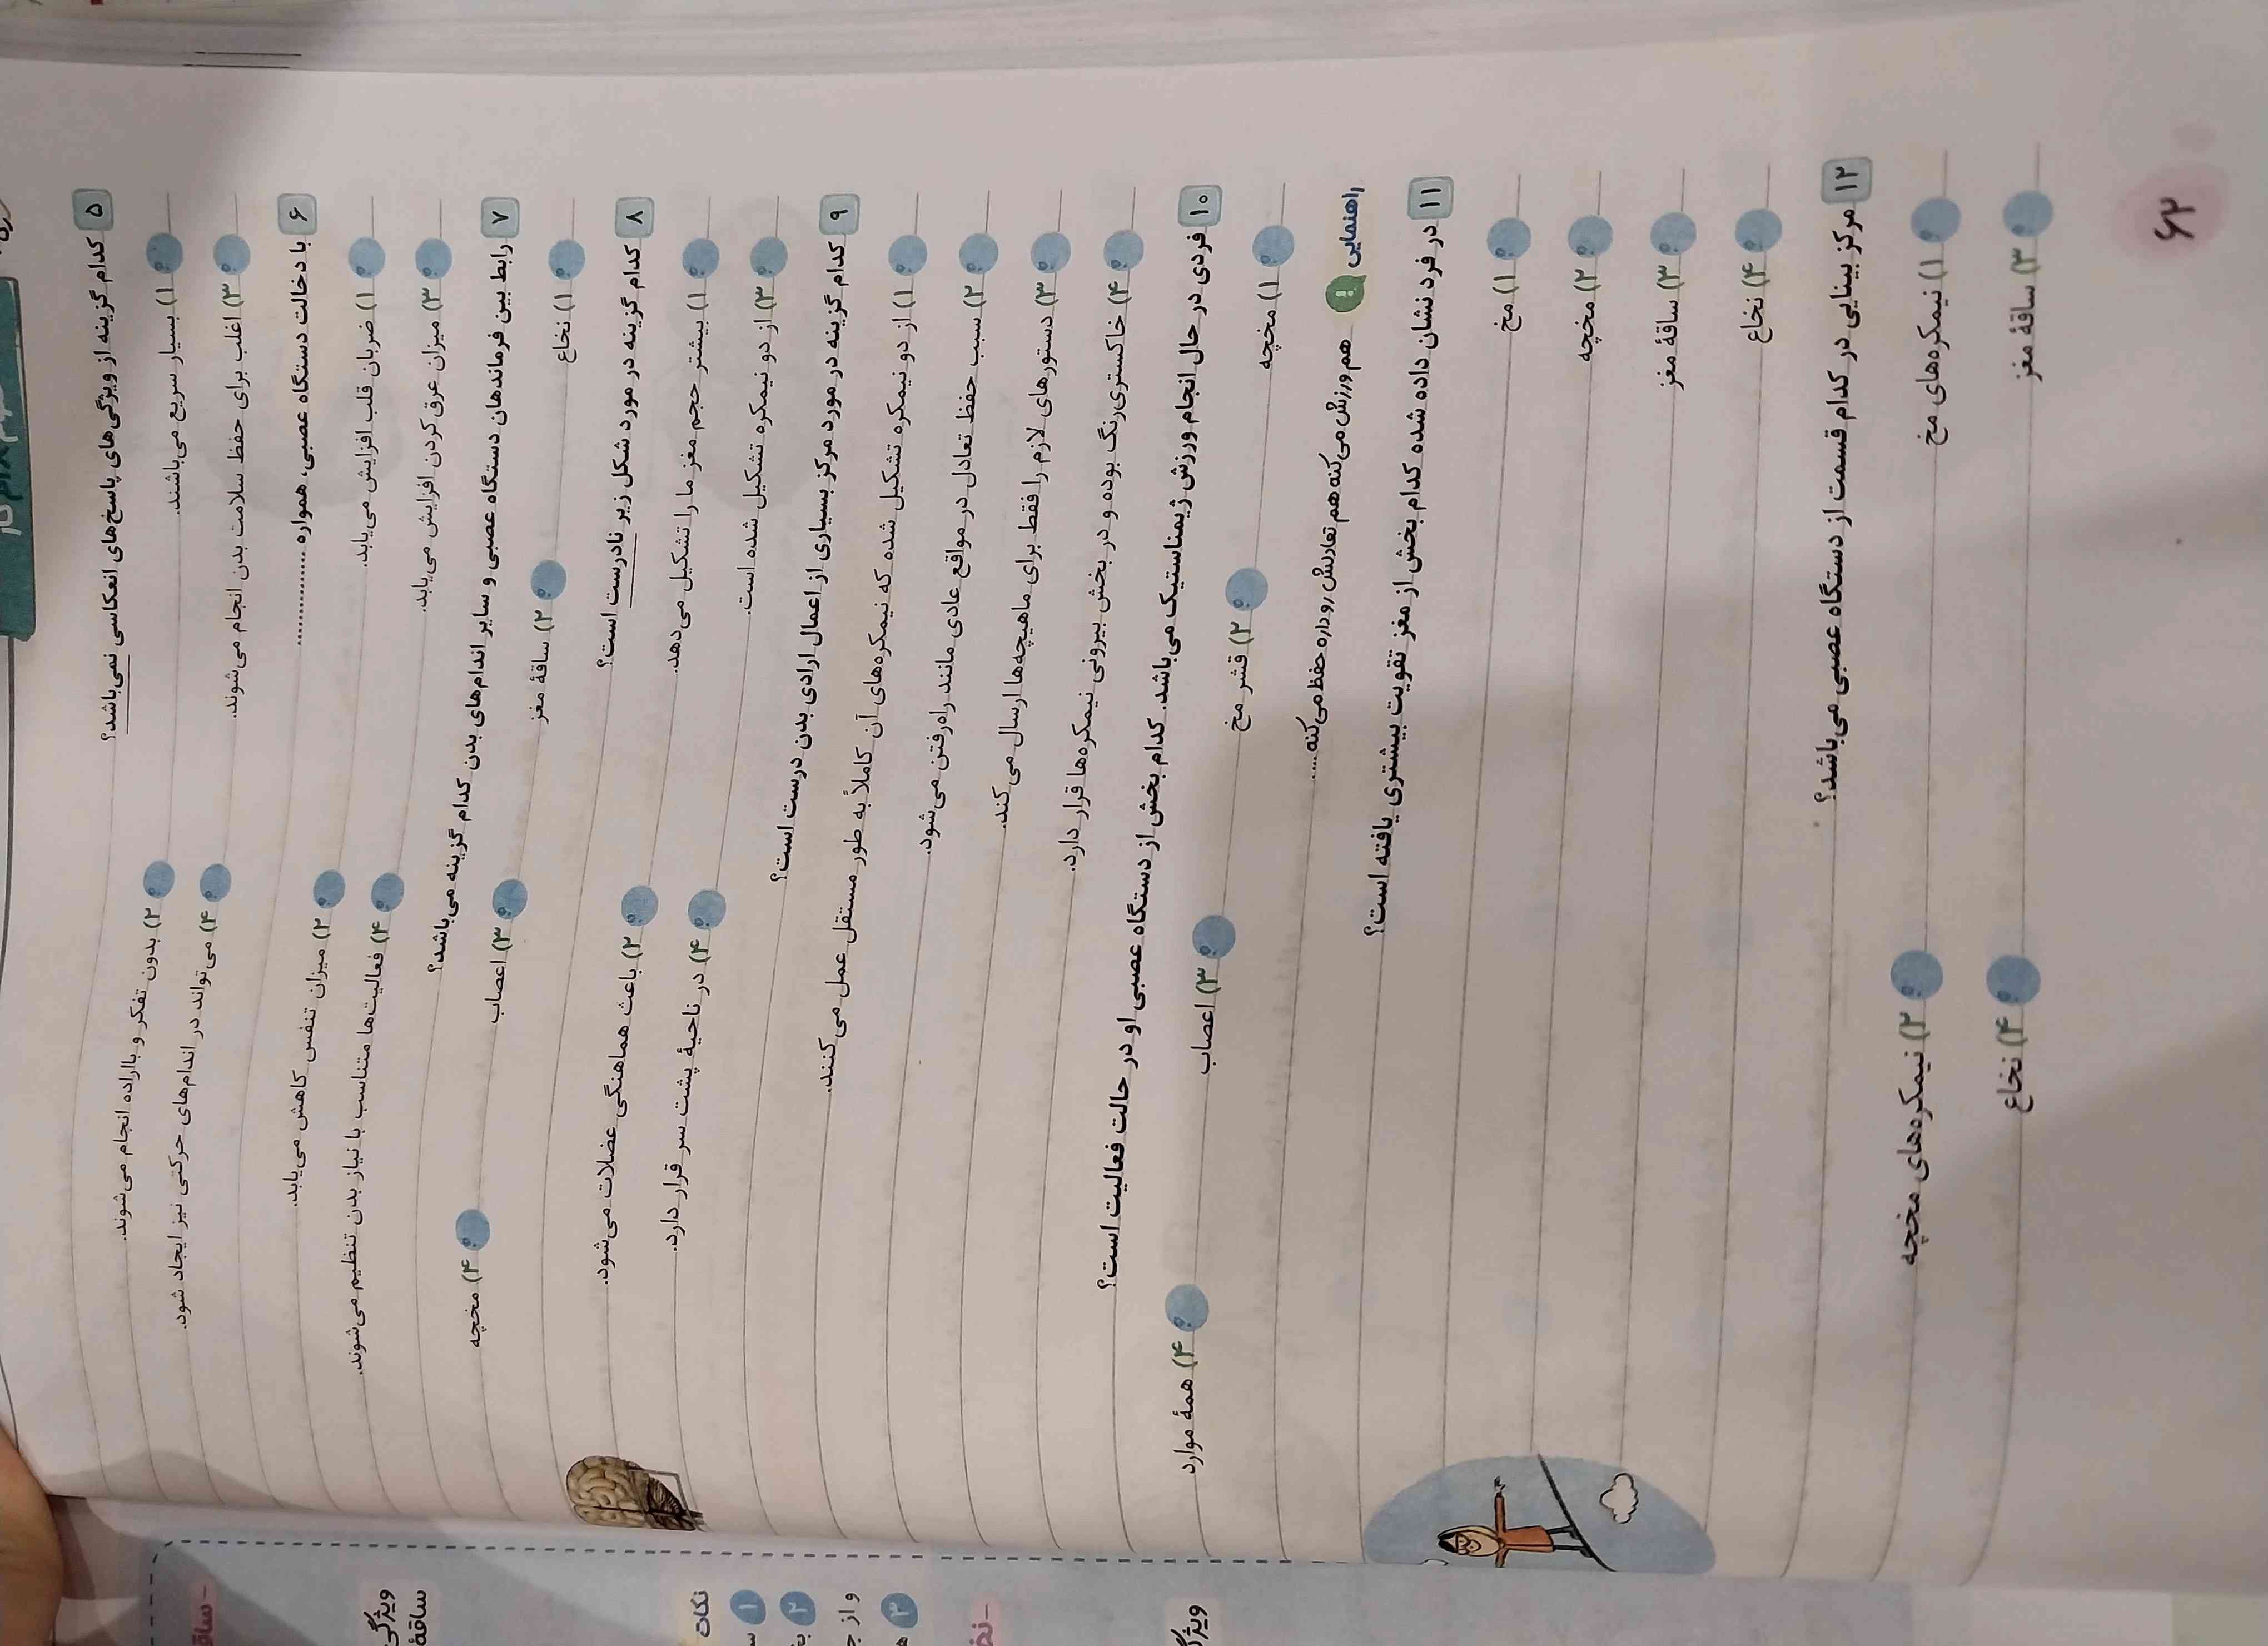 ۵ کدام گزینه از ویژگی‌های پاسخ‌های انعکاسی نمی‌باشد؟
۱) بسیار سریع می‌باشند.
۲) بدون تفکر و بااراده انجام می‌شوند.
۳) اغلب برای حفظ سلامت بدن انجام می‌شوند.
۴) می‌تواند در اندام‌های حرکتی نیز ایجاد شود.
۶ با دخالت دستگاه عصبی، همواره ............
۱) ضربان قلب افزایش می‌یابد.
۲) میزان تنفس کاهش می‌یابد.
۳) میزان عرق کردن افزایش می‌یابد.
۴) فعالیت‌ها متناسب با نیاز بدن تنظیم می‌شوند.
۷ رابط بین فرماندهان دستگاه عصبی و سایر اندام‌های بدن کدام گزینه می‌باشد؟
۱) نخاع
۲) ساقهٔ مغز
۳) اعصاب
۴) مخچه
۸ کدام گزینه در مورد شکل زیر نادرست است؟
۱) بیشتر حجم مغز ما را تشکیل می‌دهد.
۲) باعث هماهنگی عضلات می‌شود.
۳) از دو نیمکره تشکیل شده است.
۴) در ناحیهٔ پشت سر قرار دارد.
۹ کدام گزینه در مورد مرکز بسیاری از اعمال ارادی بدن درست است؟
۱) از دو نیمکره تشکیل شده که نیمکره‌های آن کاملاً به طور مستقل عمل می‌کنند.
۲) سبب حفظ تعادل در مواقع عادی مانند راه‌رفتن می‌شود.
۳) دستورهای لازم را فقط برای ماهیچه‌ها ارسال می‌کند.
۴) خاکستری‌رنگ بوده و در بخش بیرونی نیمکره‌ها قرار دارد.
۱۰ فردی در حال انجام ورزش ژیمناستیک می‌باشد. کدام بخش از دستگاه عصبی او در حالت فعالیت است؟
۱) مخچه
۲) قشر مخ
۳) اعصاب
۴) همهٔ موارد
راهنمایی ! هم ورزش می‌کنه هم تعادلش رو داره حفظ می‌کنه....
۱۱ در فرد نشان داده شده کدام بخش از مغز تقویت بیشتری یافته است؟
۱) مخ
۲) مخچه
۳) ساقهٔ مغز
۴) نخاع
۱۲ مرکز بینایی در کدام قسمت از دستگاه عصبی می‌باشد؟
۱) نیمکره‌های مخ
۲) نیمکره‌های مخچه
۳) ساقهٔ مغز
۴) نخاع
۶۲
ویژگی
ساقهٔ
نکات
۱
۲
و از
۳